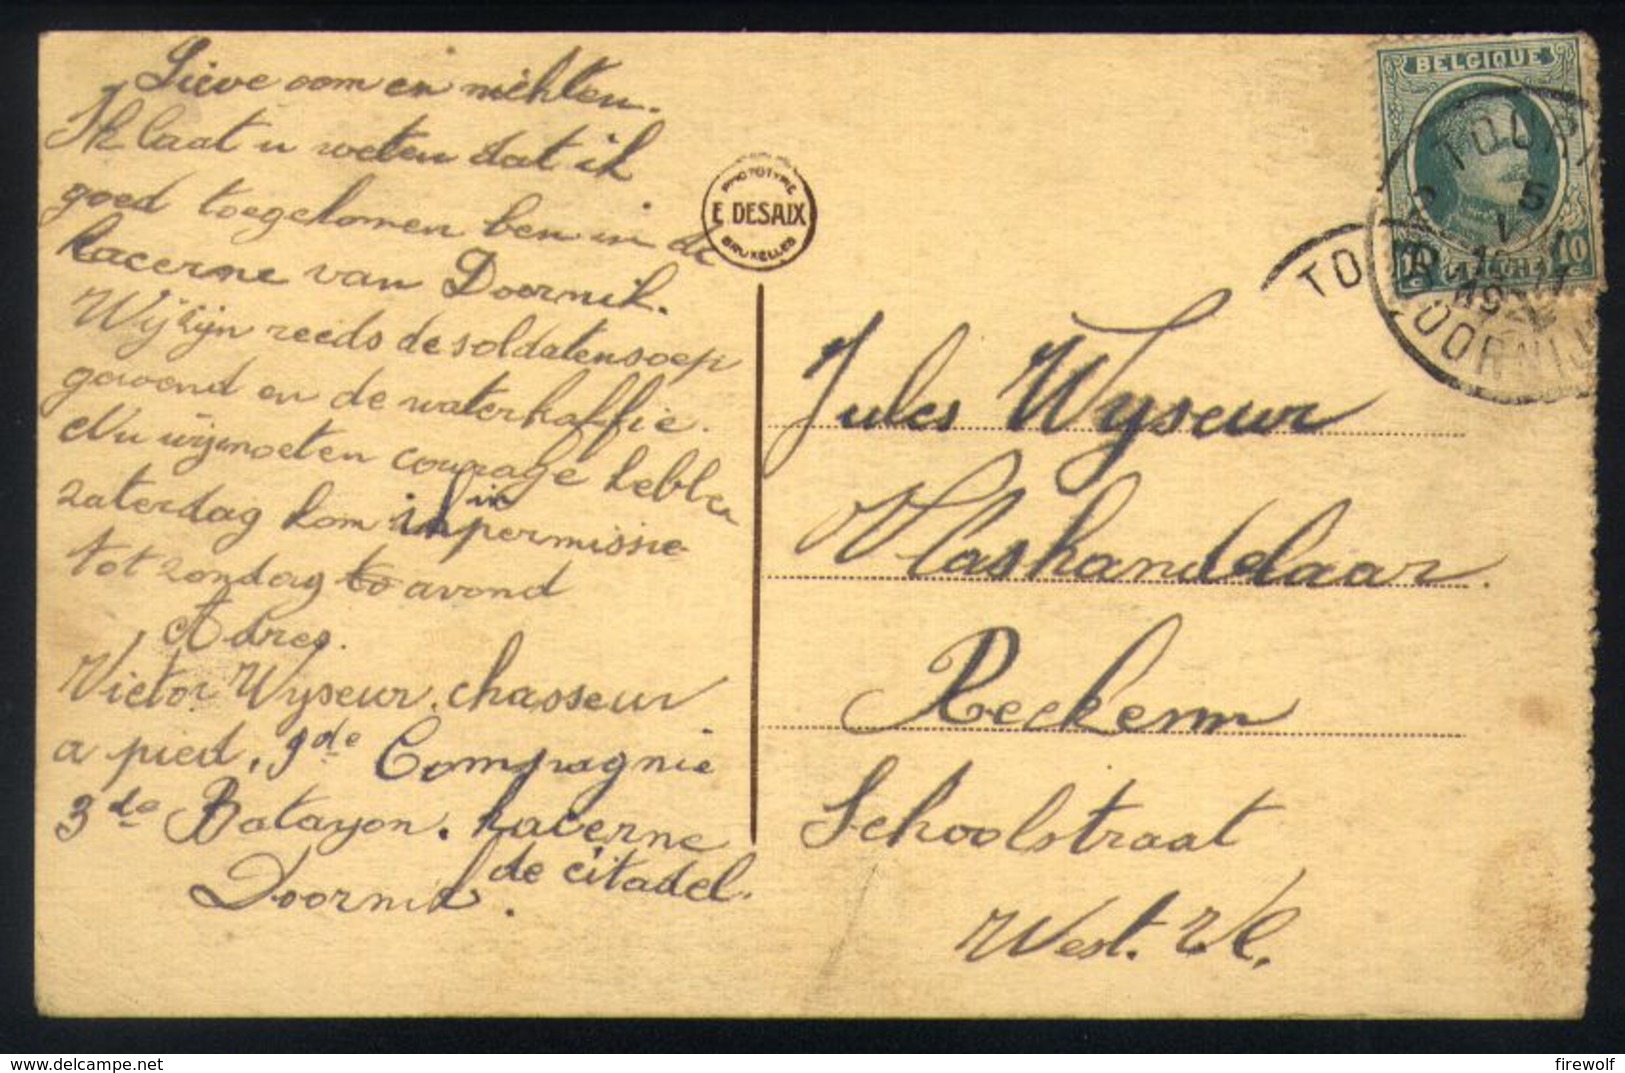 Lieve oom en nichten.
Ik laat u weten dat ik
goed toegekomen ben in de
kacerne van Doornik.
Wij zijn reeds de soldatensoep
gewend en de waterkaffie.
Nu wij moeten courage hebben
zaterdag kom ik in permissie
tot zondag avond
Adres.
Victor Wyseur, chasseur
a pied, 9de Compagnie
3de Batayon. kacerne
de citadel.
Doornik.
PHOTOTYPIE
E DESAIX
BRUXELLES
BELGIQUE
10
TOURN
5
DOORNIJK
TO
Jules Wyseur
Vlashandelaar
Reckem
Schoolstraat
West. Vl.
firewolf